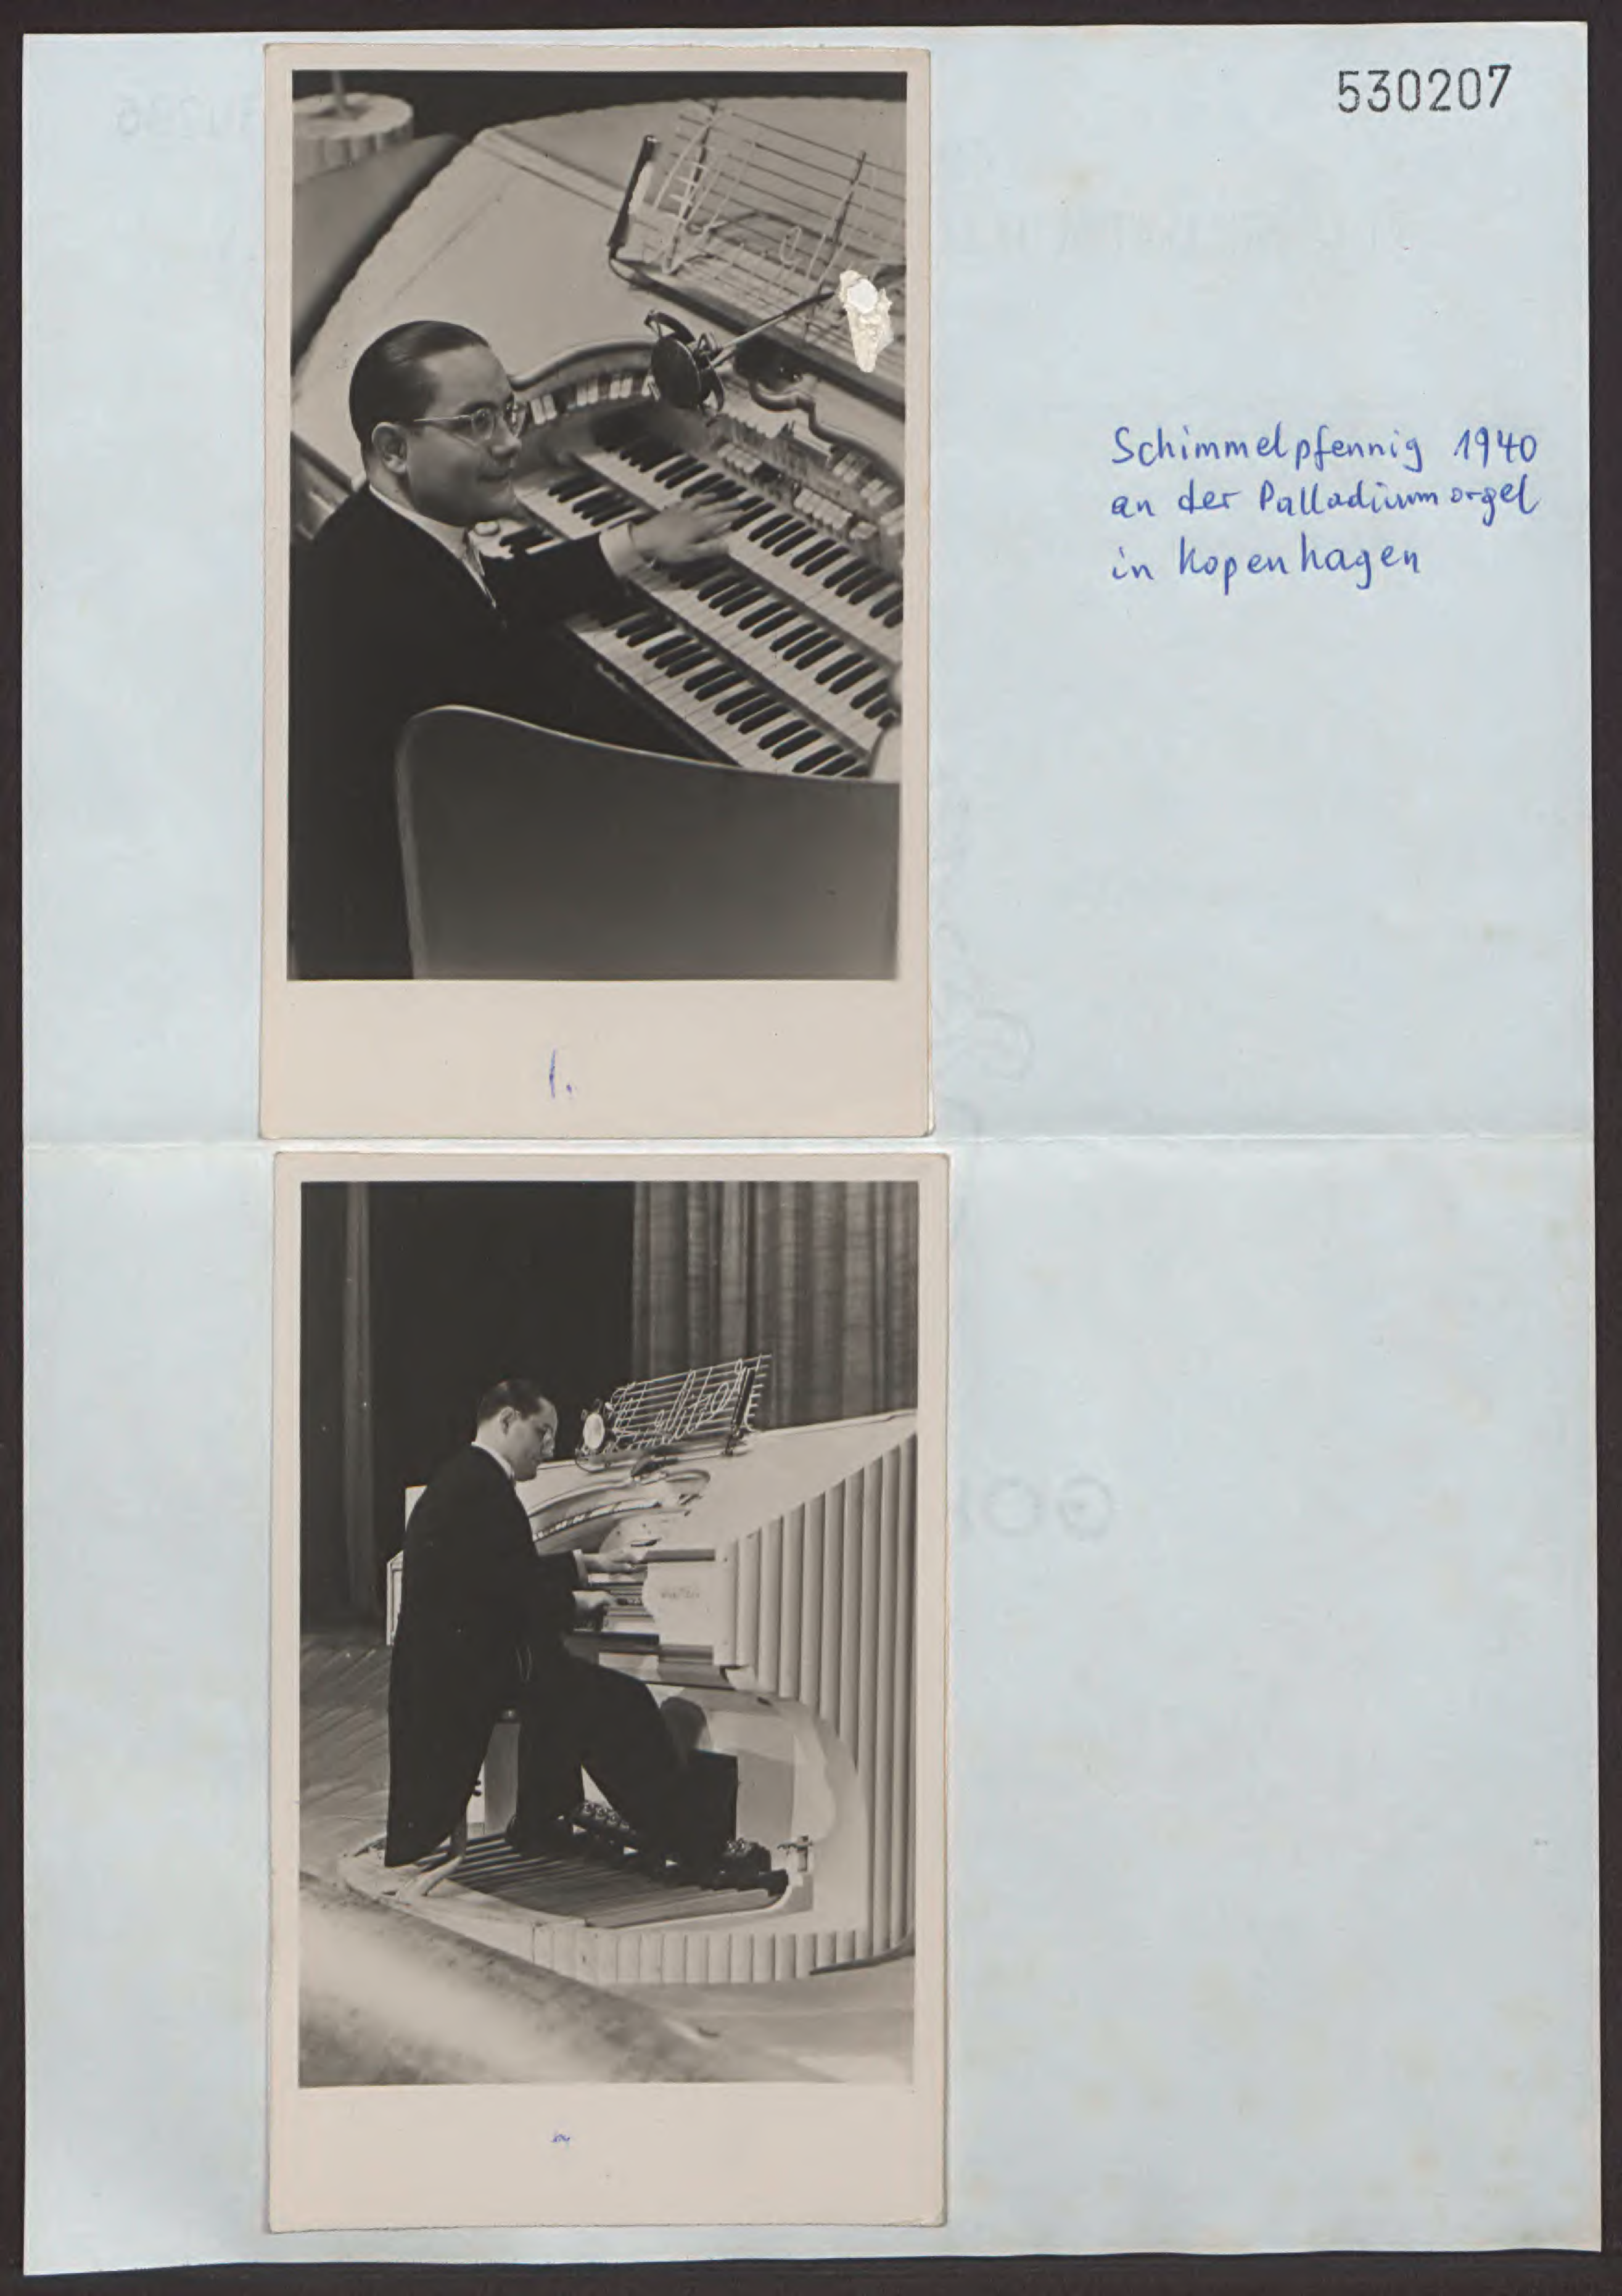 530207
Schimmelpfennig 1940
an der Palladiumorgel
in Kopenhagen
1.
Wurlitzer